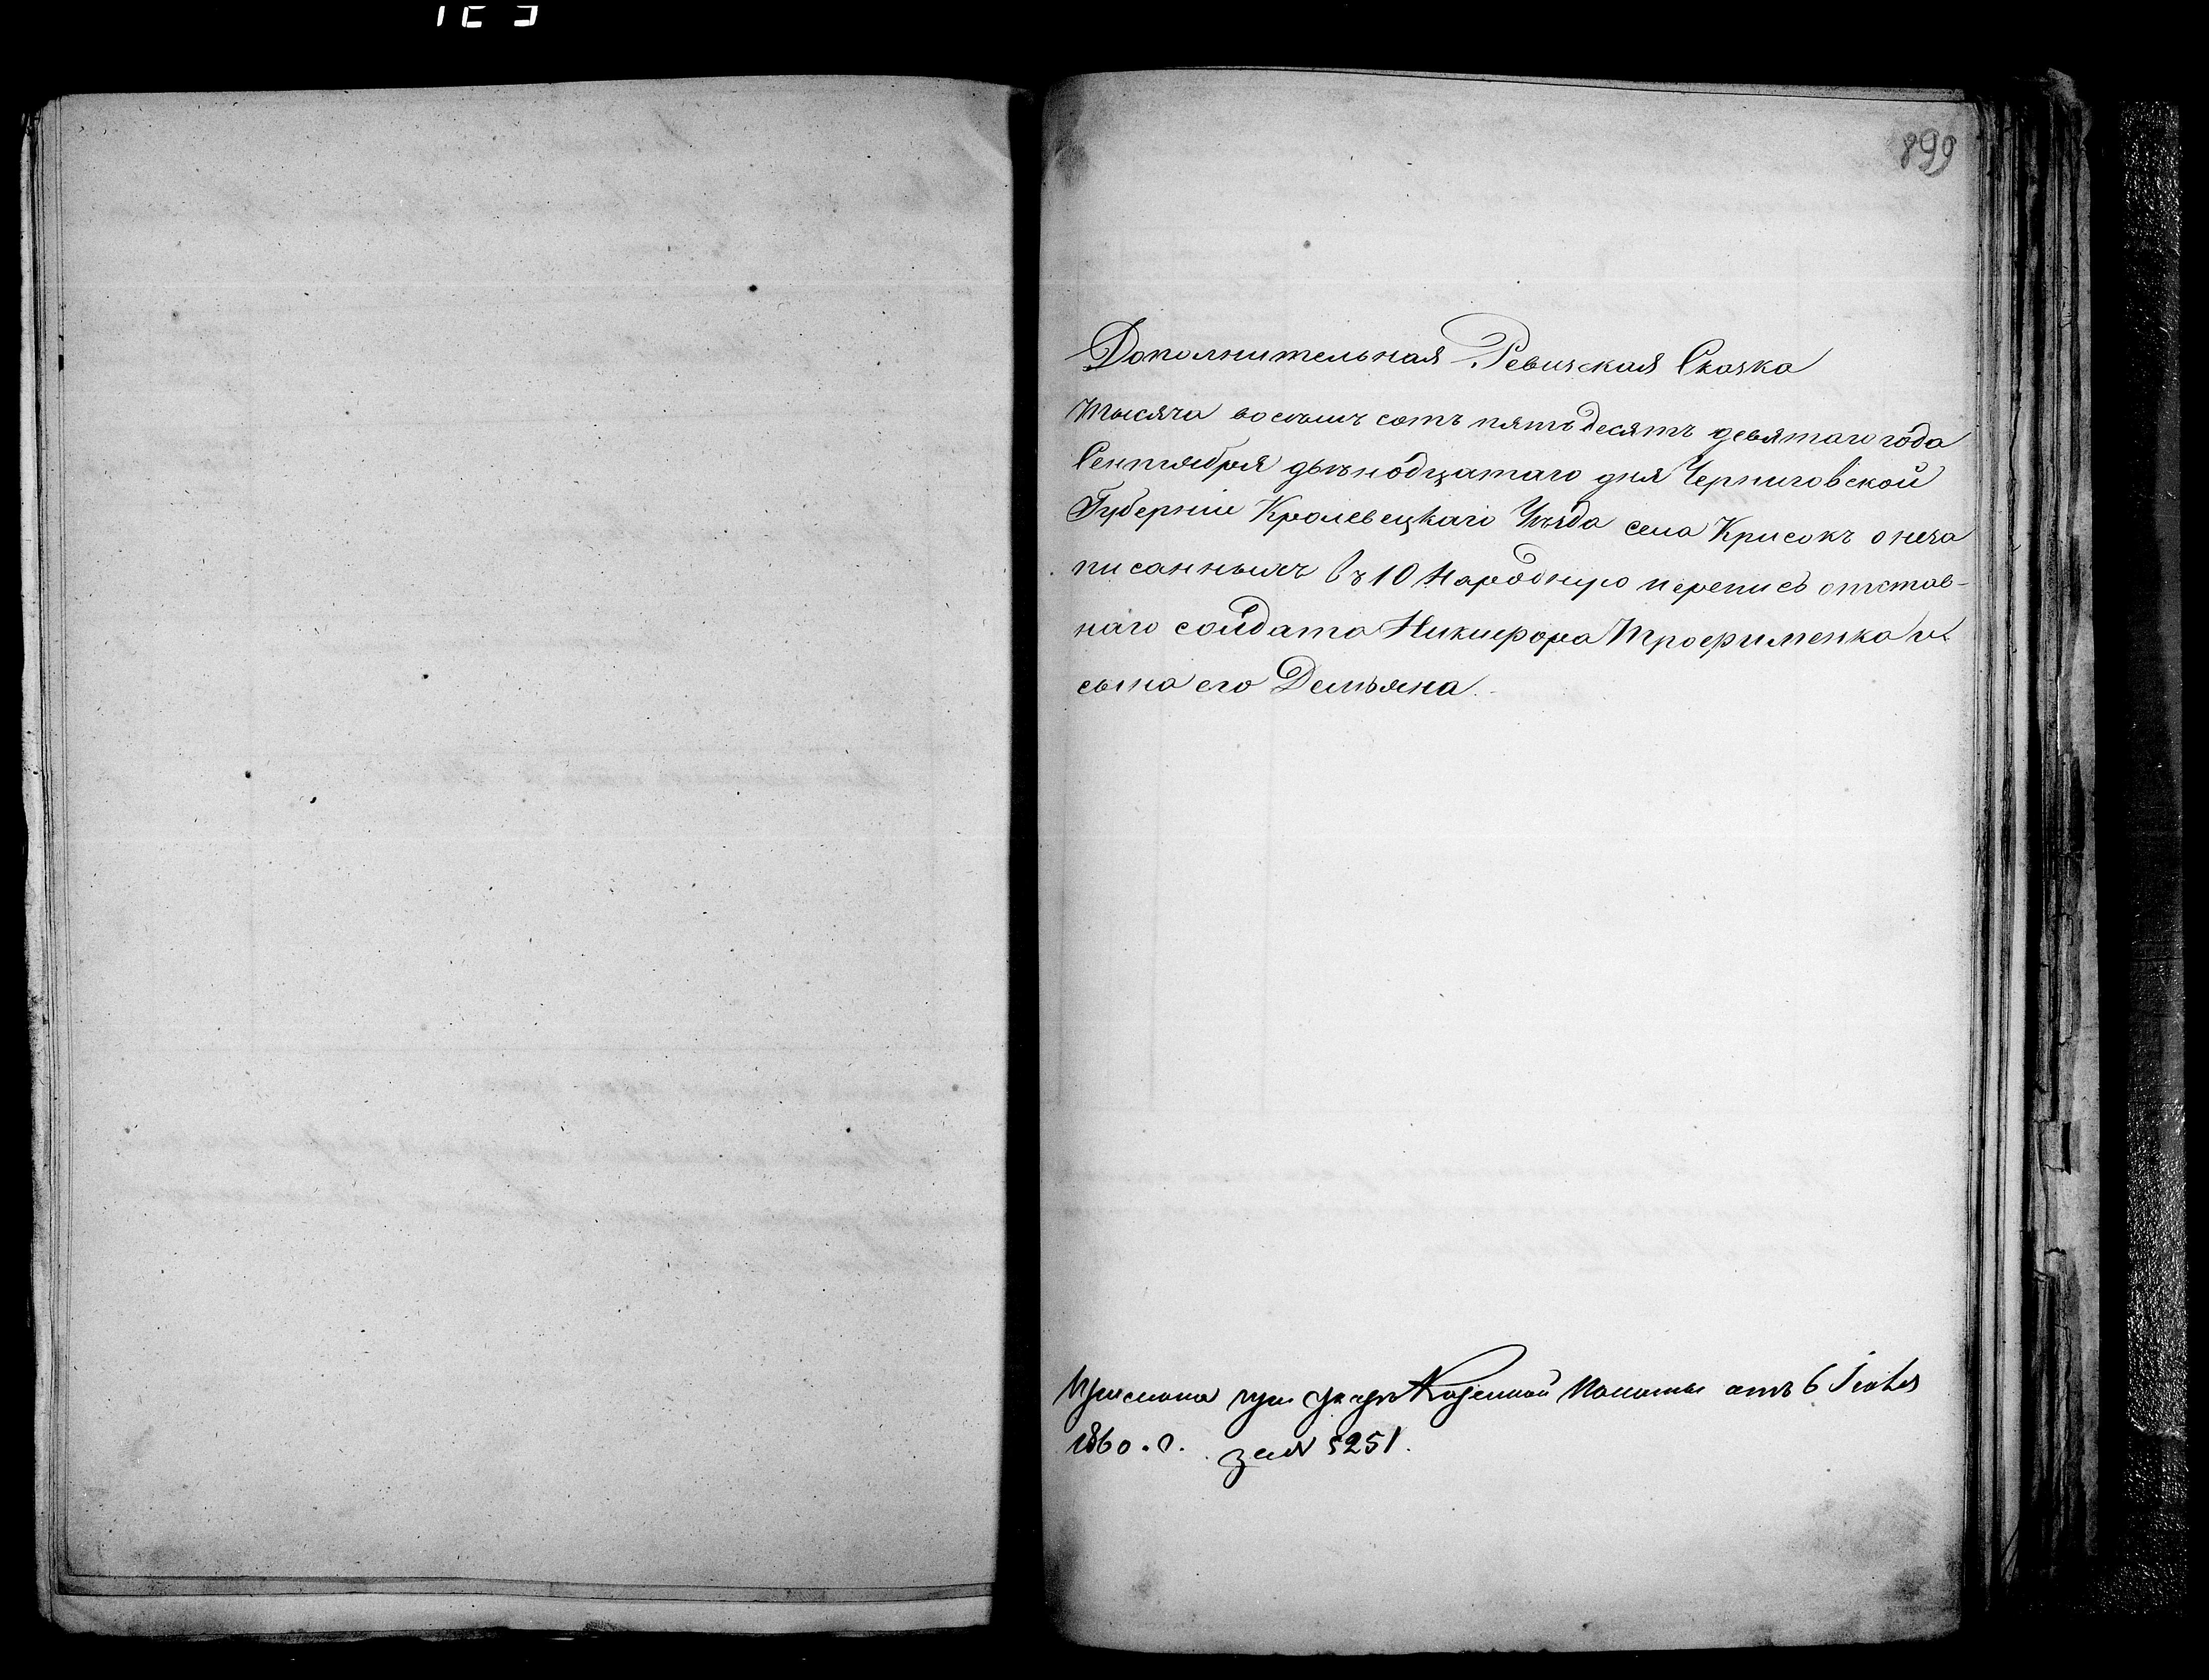 899
Дополнительная Ревизская Сказка
Тысяча восемь сотъ пятьдесятъ девятаго года
Сентября двѣнодцатаго дня Черниговской
Губерніи Кролевецкаго Уѣзда села Крисокъ о неза
писанныхъ въ 10 Народную перепись отстав-
наго солдата Никифора Трофименка и
сына его Демьяна.
Прислана при указѣ Казенной Палаты отъ 6 Іюля
1860. г. за № 5251.